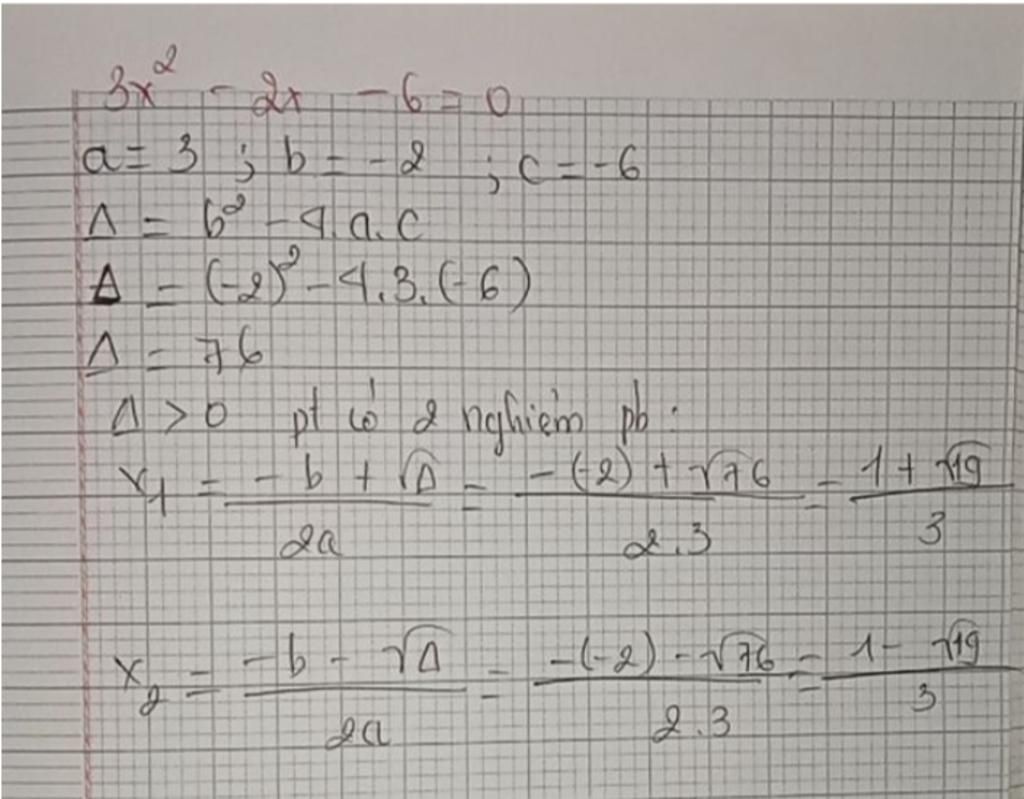 3x² - 2x - 6 = 0
a = 3 ; b = -2 ; c = -6
Δ = b² - 4.a.c
Δ = (-2)² - 4.3.(-6)
Δ = 76
Δ > 0 pt có 2 nghiệm pb :
x₁ = (-b + √Δ)/(2a) = (-(-2) + √76)/(2.3) = (1 + √19)/3
x₂ = (-b - √Δ)/(2a) = (-(-2) - √76)/(2.3) = (1 - √19)/3